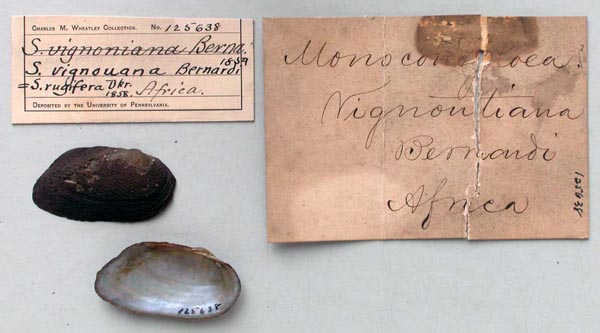 CHARLES M. WHEATLEY COLLECTION. No. 125638
S. vignoniana Bernardi
S. vignouana Bernardi 1859
=S. rugifera Dkr. 1858. Africa.
DEPOSITED BY THE UNIVERSITY OF PENNSYLVANIA.
Monocondyloea?
Vignontiana
Bernardi
Africa
125638
125638